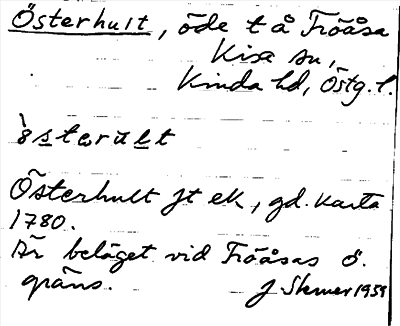 Österhult, öde t å Fröåsa
Kisa sn,
Kinda hd, Östg. l.
`ös̱teru̱ḻt
Österhult jt ek, gd. karta
1780.
Är beläget vid Fröåsas ö.
gräns. J. Skener 1959